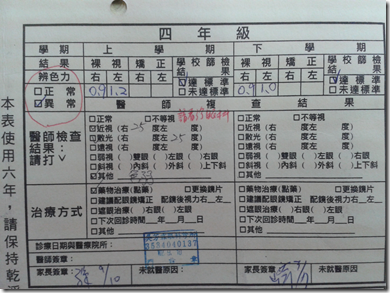 四年級
學期 上學期 下學期
結果 裸視 矯正 學校篩檢結果 裸視 矯正 學校篩檢結果
辨色力 右 左 右 左 ☑達標準 右 左 右 左 ☑達標準
□正常 0.9 1.2 □未達標準 0.9 1.0 □未達標準
☑異常 醫師複查結果
醫師檢查結果:請打∨
□正常 □不等視 □正常 □不等視
近視(右25度左 度) □近視(右 度左 度)
□遠視(右 度左 度) □遠視(右 度左 度)
散光(右 度左25度) □散光(右 度左 度)
□弱視( )雙眼( )左眼( )右眼 □弱視( )雙眼( )左眼( )右眼
□斜視( )內斜( )外斜( )上下斜 □斜視( )內斜( )外斜( )上下斜
其他 □其他
治療方式
藥物治療(點藥) □更換鏡片 □藥物治療(點藥) □更換鏡片
□建議配眼鏡矯正 配鏡後視力右 左 □建議配眼鏡矯正 配鏡後視力右 左
□遮眼治療( )右眼( )左眼 □遮眼治療( )右眼( )左眼
□下次回診時間 年 月 日 □下次回診時間 年 月 日
□其他 □其他
診療日期與醫療院所:
醫師簽章:
家長簽章: 9/10 未就醫原因: 家長簽章: 未就醫原因:
本表使用六年,請保持乾